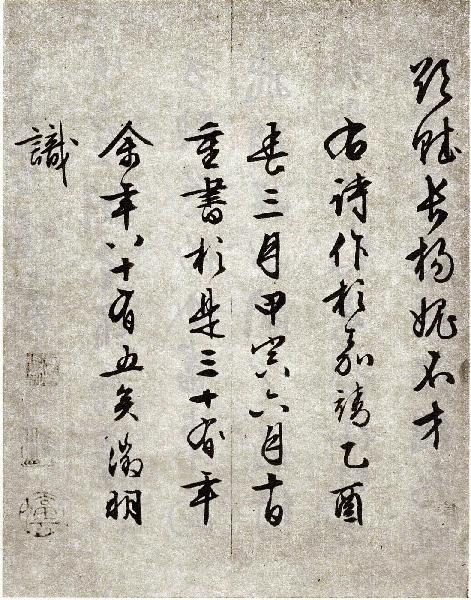 欲賦長楊愧不才
右詩作於嘉靖乙酉
春三月甲寅六月十日
重書於是三十有年
余年八十有五矣徵明
識